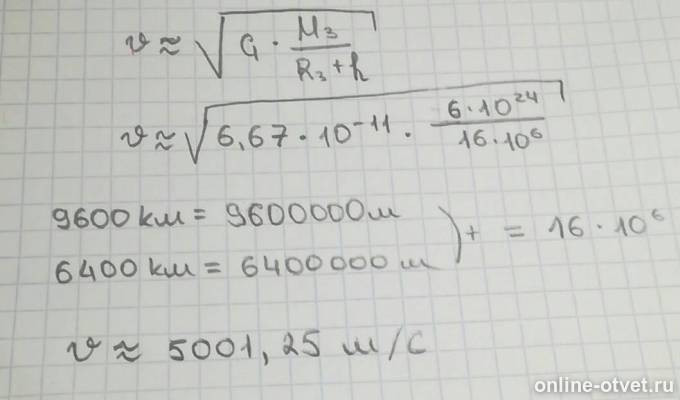 v ≈ √(G · M₃/(R₃ + h))
v ≈ √(6,67 · 10⁻¹¹ · 6·10²⁴/16·10⁶)
9600 км = 9600000 м
6400 км = 6400000 м ) + = 16 · 10⁶
v ≈ 5001,25 м/с
online-otvet.ru